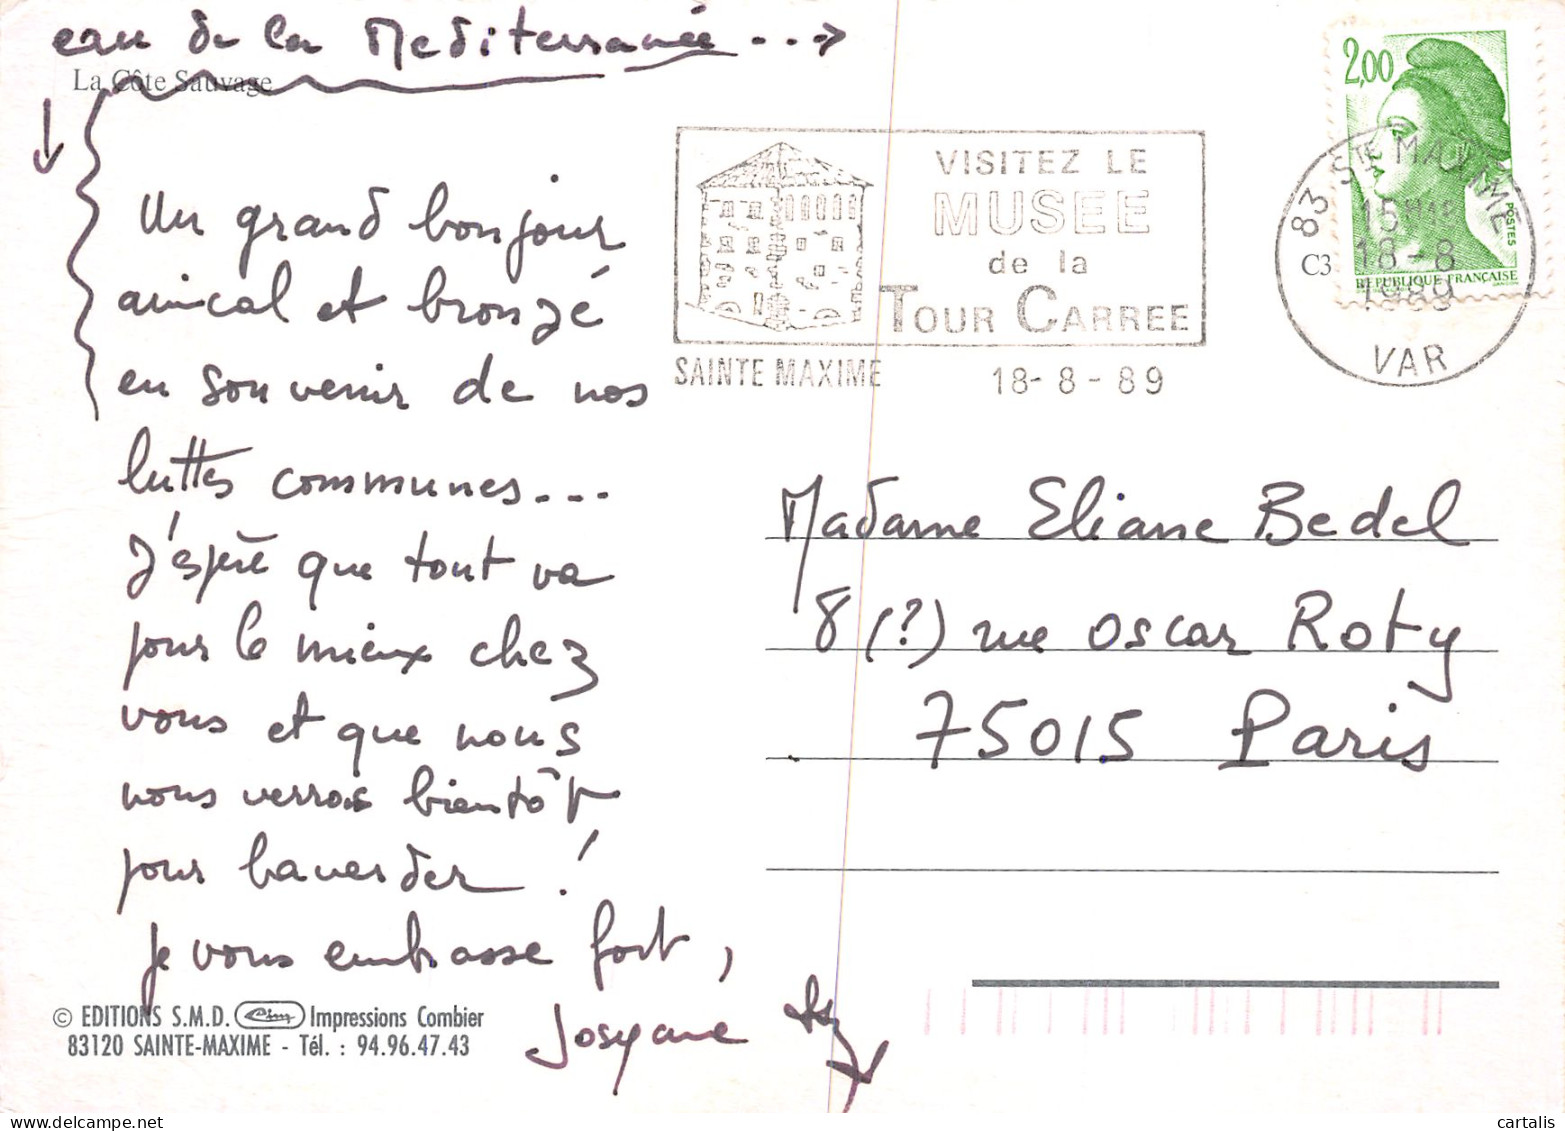 eau de la Mediterranée...→
La Côte Sauvage
Un grand bonjour
amical et bronzé
en souvenir de nos
luttes communes...
J'espère que tout va
pour le mieux chez
vous et que nous
nous verrons bientôt
pour bavarder !
Je vous embrasse fort,
Josyane
© EDITIONS S.M.D. Cim Impressions Combier
83120 SAINTE-MAXIME - Tél. : 94.96.47.43
VISITEZ LE
MUSEE
de la
TOUR CARREE
SAINTE MAXIME
18-8-89
2,00
POSTES
REPUBLIQUE FRANÇAISE
83 STE MAXIME
C3
18-8
1989
VAR
Madame Eliane Bedel
8 (?) rue Oscar Roty
75015 Paris
cartalis